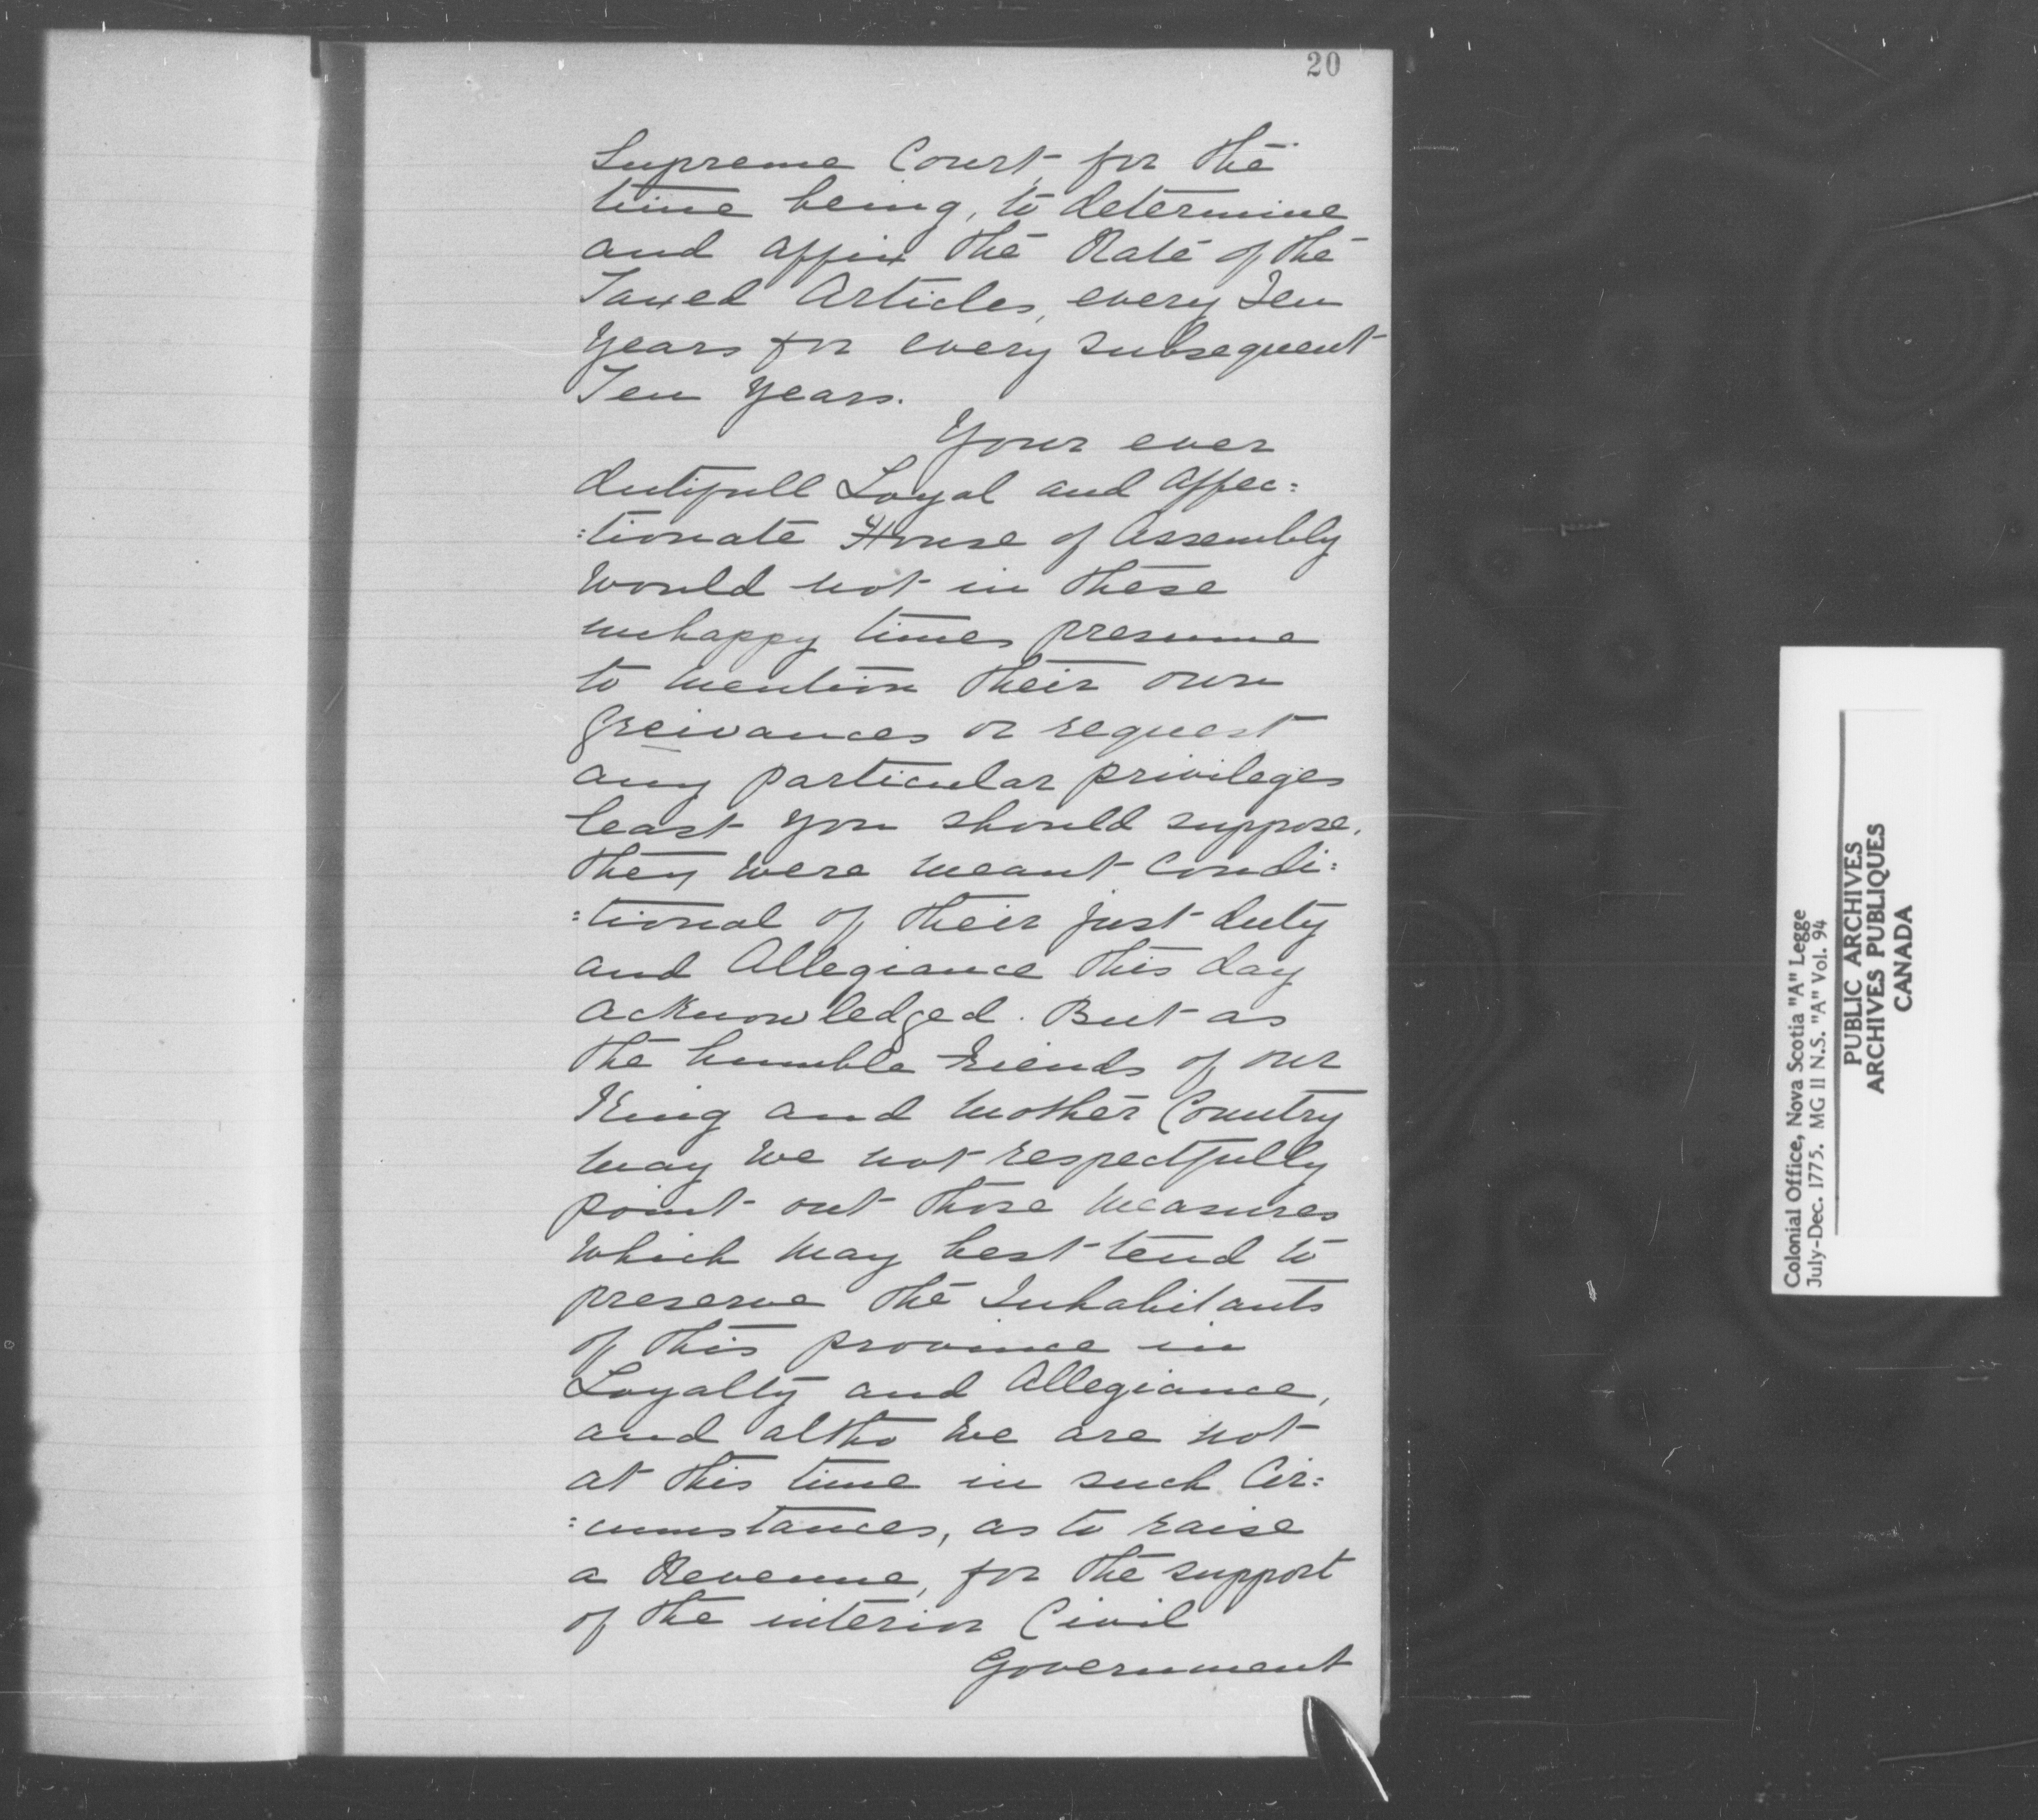 20
Supreme Court, for the
time being, to determine
and affix the Rate of the
Taxed Articles, every Ten
years for every subsequent
Ten years.
Your ever
dutifull Loyal and affec:
:tionate House of Assembly
would not in these
unhappy times presume
to mention their own
greivances or request
any particular privileges
least you should suppose,
they were meant condi:
:tional of their just duty
and Allegiance this day
acknowledged. But as
the humble Friends of our
King and Mother Country
may we not respectfully
point out those Measures
which may best tend to
preserve the Inhabitants
of this province in
Loyalty and Allegiance,
and altho we are not
at this time in such Cir:
:cumstances, as to raise
a Revenue, for the support
of the interior Civil
Government
Colonial Office, Nova Scotia "A" Legge
July-Dec. 1775. MG II N.S. "A" Vol. 94
PUBLIC ARCHIVES
ARCHIVES PUBLIQUES
CANADA